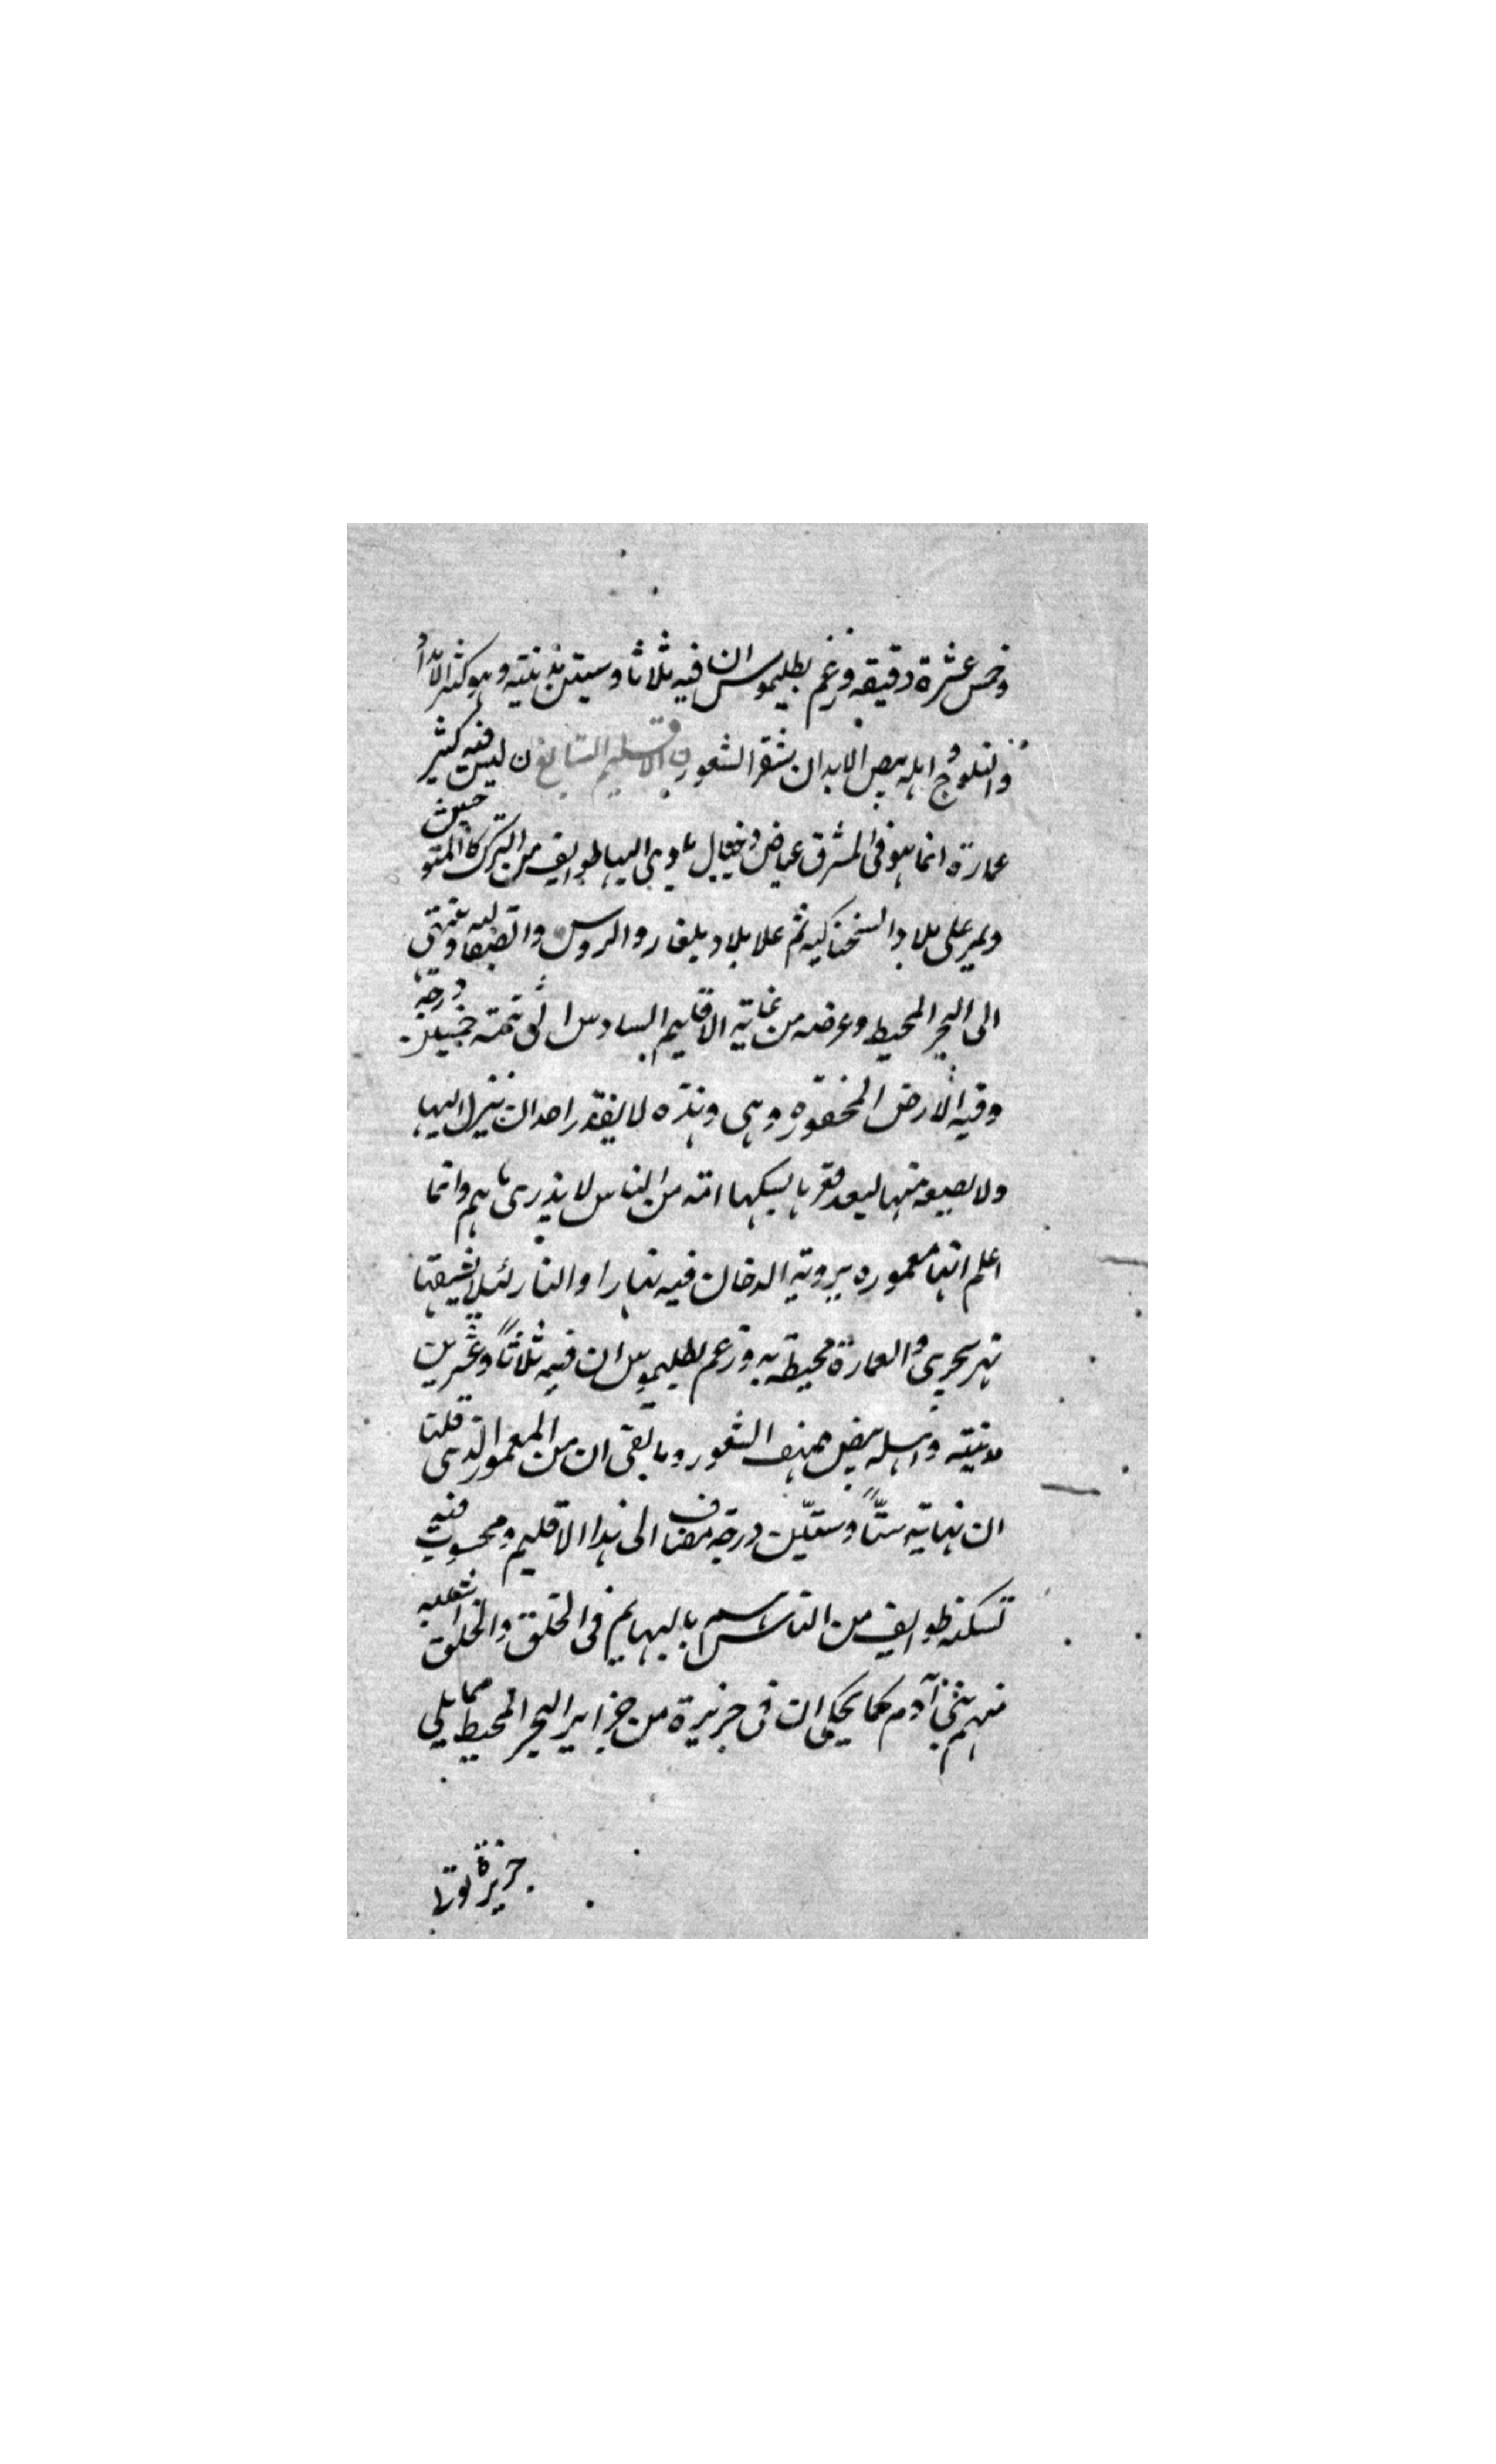 وخمس عشرة دقيقه وزعم بطليموس ان فيه ثلاثا وستين مدينته وهو كثير الاندا
والثلوج واهله بيض الابدان شقر الشعور الاقليم السابع ن ليس فيه كثير
عمارة انما هو فى المشرق غياض وجبال ياوى اليها طوايف من الترك كالمتوحش
ويمر على بلاد السحناكيه ثم علا بلاد بلغار والروس والصقالبه وينتهى
الى البحر المحيط وعرضه من غاية الاقليم السادس الى تتمة خمسين درجة
وفيه الارض المحفوره وهى وهذه لا يقدر احد ان ينزل اليها
ولا يصعد منها لبعد قعرها يسكنها امة من الناس لا يدرى ما هم وانما
اعلم انها معموره بروية الدخان فيه نهارا والنار ليلا يشقها
نهر يجرى والعمارة محيطة به وزعم بطليموس ان فيه ثلاثاً وعشرين
مدينته واهله بيض صهب الشعور وما بقى ان من المعمور الذى قلنا
ان نهايته ستّاً وستّين درجة مضاف الى هذا الاقليم ومحسوب فيه
تسكنه طوايف من الناس هم بالبهايم فى الخلق والخلق اشبه
منهم ببنى آدم كما يحكى ان فى جزيرة من جزاير البحر المحيط مما يلى
جزيرة